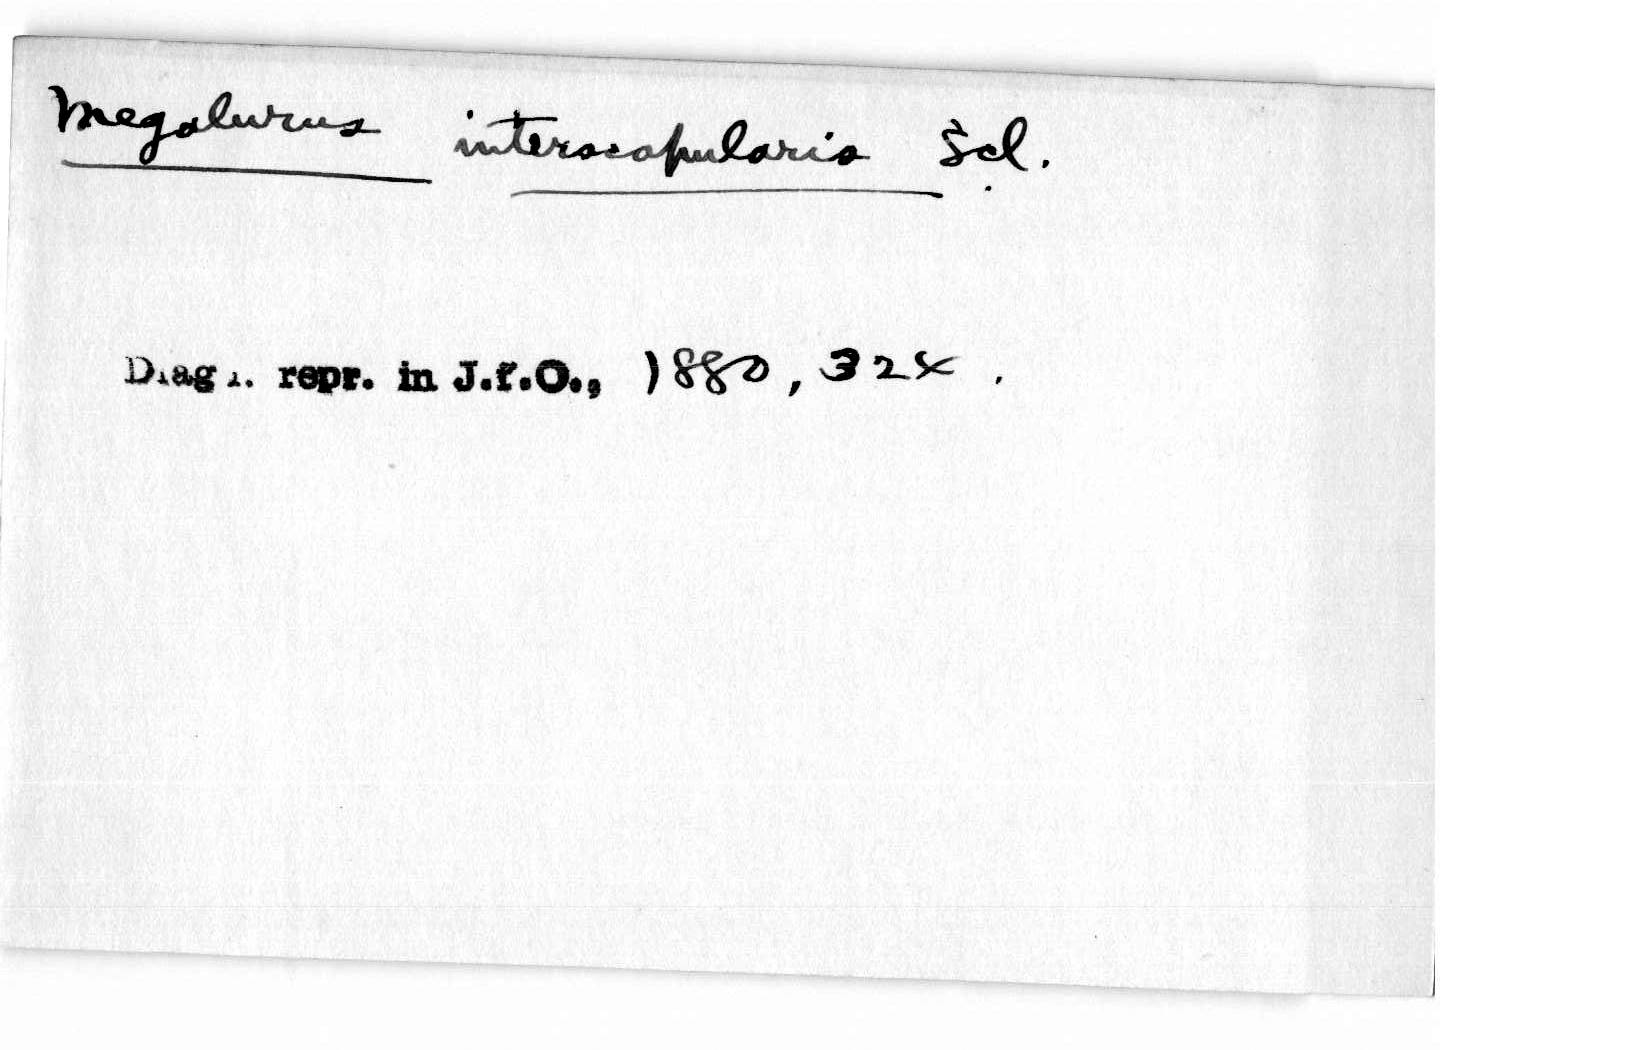 Megalurus interscapularis Scl.
Diagn. repr. in J.f.O., 1880, 324.